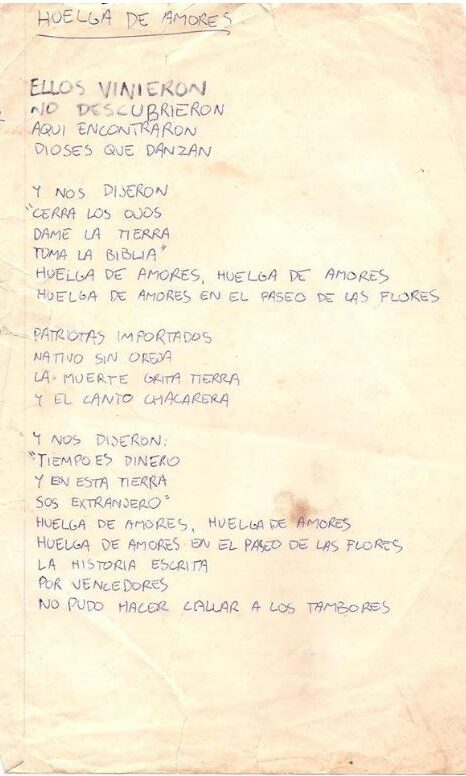 HUELGA DE AMORES
ELLOS VINIERON
NO DESCUBRIERON
AQUI ENCONTRARON
DIOSES QUE DANZAN
Y NOS DIJERON
"CERRA LOS OJOS
DAME LA TIERRA
TOMA LA BIBLIA"
HUELGA DE AMORES, HUELGA DE AMORES
HUELGA DE AMORES EN EL PASEO DE LAS FLORES
PATRIOTAS IMPORTADOS
NATIVO SIN OREJA
LA MUERTE GRITA TIERRA
Y EL CANTO CHACARERA
Y NOS DIJERON:
"TIEMPO ES DINERO
Y EN ESTA TIERRA
SOS EXTRANJERO"
HUELGA DE AMORES, HUELGA DE AMORES
HUELGA DE AMORES EN EL PASEO DE LAS FLORES
LA HISTORIA ESCRITA
POR VENCEDORES
NO PUDO HACER CALLAR A LOS TAMBORES